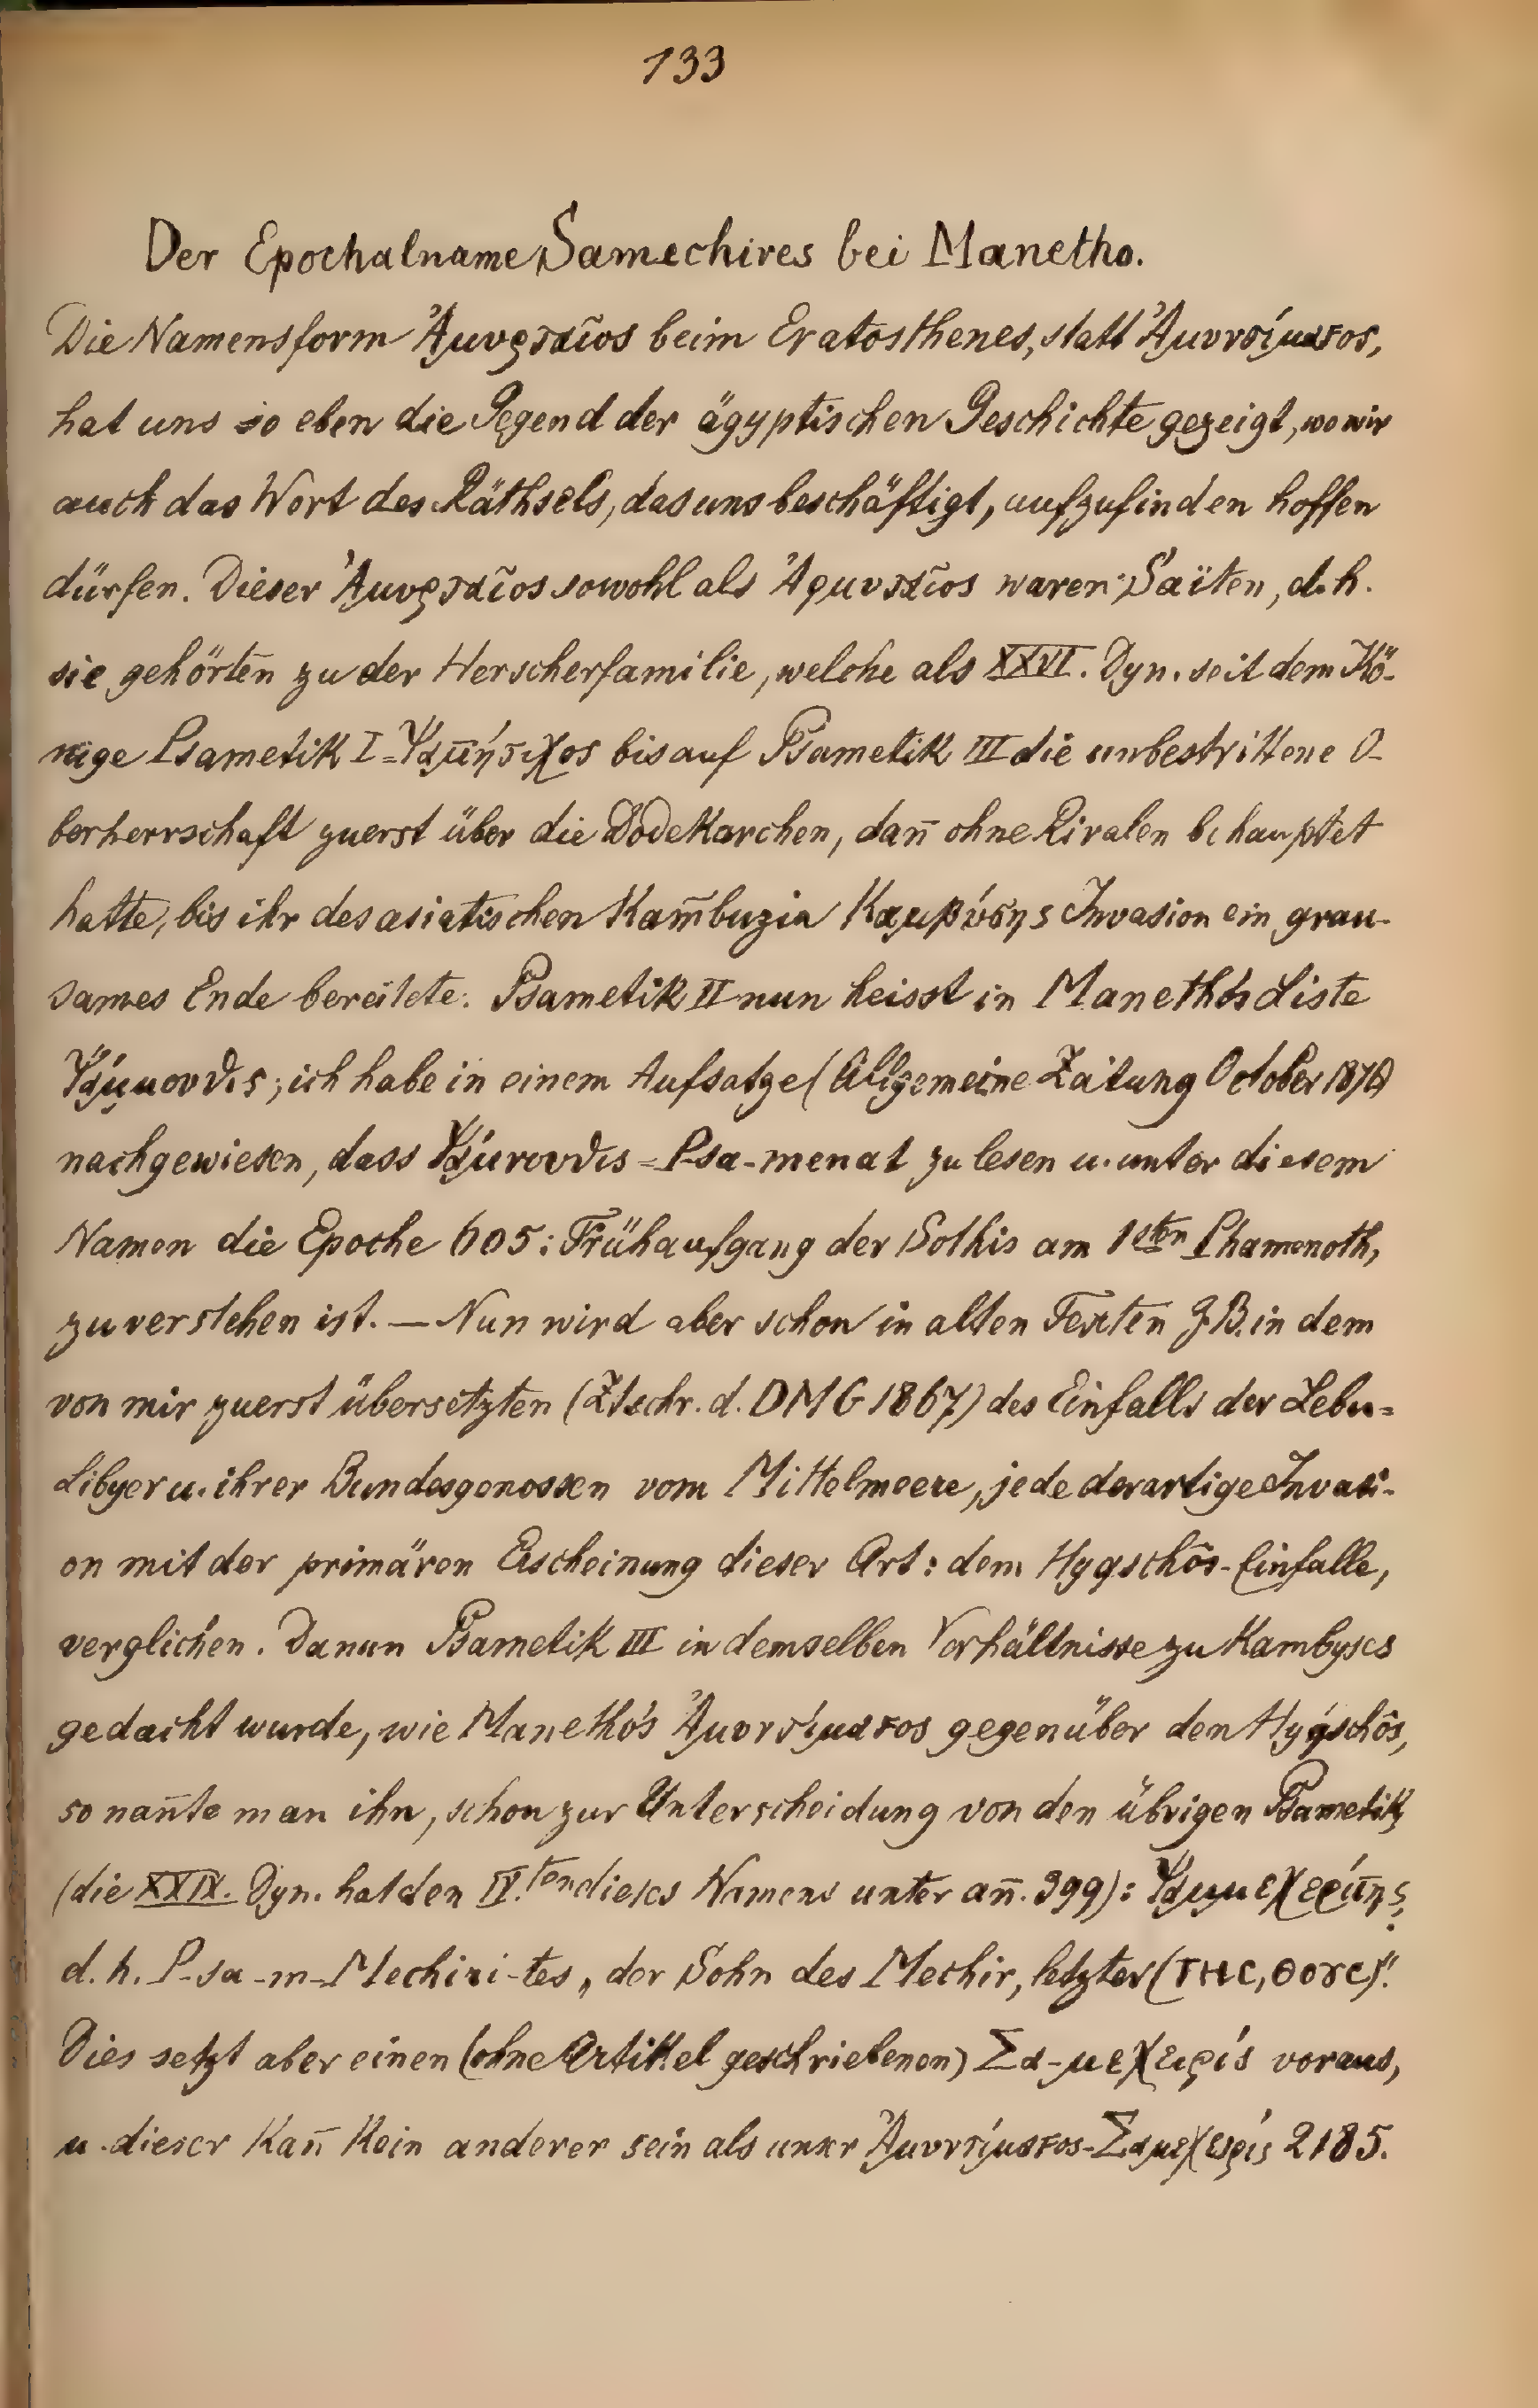 133
Der Epochalname Samechires bei Manetho.
Die Namensform Ἀμυρταῖος beim Eratosthenes, statt Ἀμυντίμαιος,
hat uns so eben die Gegend der ägyptischen Geschichte gezeigt, wo wir
auch das Wort des Räthsels, das uns beschäftigt, aufzufinden hoffen
dürfen. Dieser Ἀμυρταῖος sowohl als waren Saïten, d.h.
sie gehörten zu der Herscherfamilie, welche als XXVI. Dyn. seit dem Kö-
nige Psametik I = bis auf Psametik III die unbestrittene O-
berherrschaft zuerst über die Dodekarchen, dañ ohne Rivalen behauptet
hatte, bis ihr des asiatischen Kam̄buzia Καμβύσης Invasion ein grau-
sames Ende bereitete. Psametik II nun heisst in Manetho's Liste
Ψάμμουθις; ich habe in einem Aufsatze (Allgemeine Zeitung October
nachgewiesen, dass Ψάμμουθις = P-sa-menat zu lesen u. unter diesem
Namen die Epoche 605: Frühaufgang der Sothis am 1sten Phamenoth,
zu verstehen ist. — Nun wird aber schon in alten Texten z.B. in dem
von mir zuerst übersetzten (Ztschr. d. DMG 1867) des Einfalls der Lebu-
Libyer u. ihrer Bundesgenossen vom Mittelmeere, jede derartige Invasi-
on mit der primären Erscheinung dieser Art: dem Hyqschôs-Einfalle,
verglichen. Da nun Psametik III in demselben Verhältnisse zu Kambyses
gedacht wurde, wie Manetho's gegenüber den Hyqschôs,
so nañte man ihn, schon zur Unterscheidung von den übrigen Psametik
(die XXIX. Dyn. hat den IV.ten dieses Namens unter añ. 399):
d. h. P-sa-m-Mechiri-tes „der Sohn des Mechir, letzter (ⲧⲏⲥ, ⲑⲟⲩⲉ)".
Dies setzt aber einen (ohne Artikel geschriebenen) Σα-μεχειρίς voraus,
u. dieser Kañ Kein anderer sein als unser 2185.